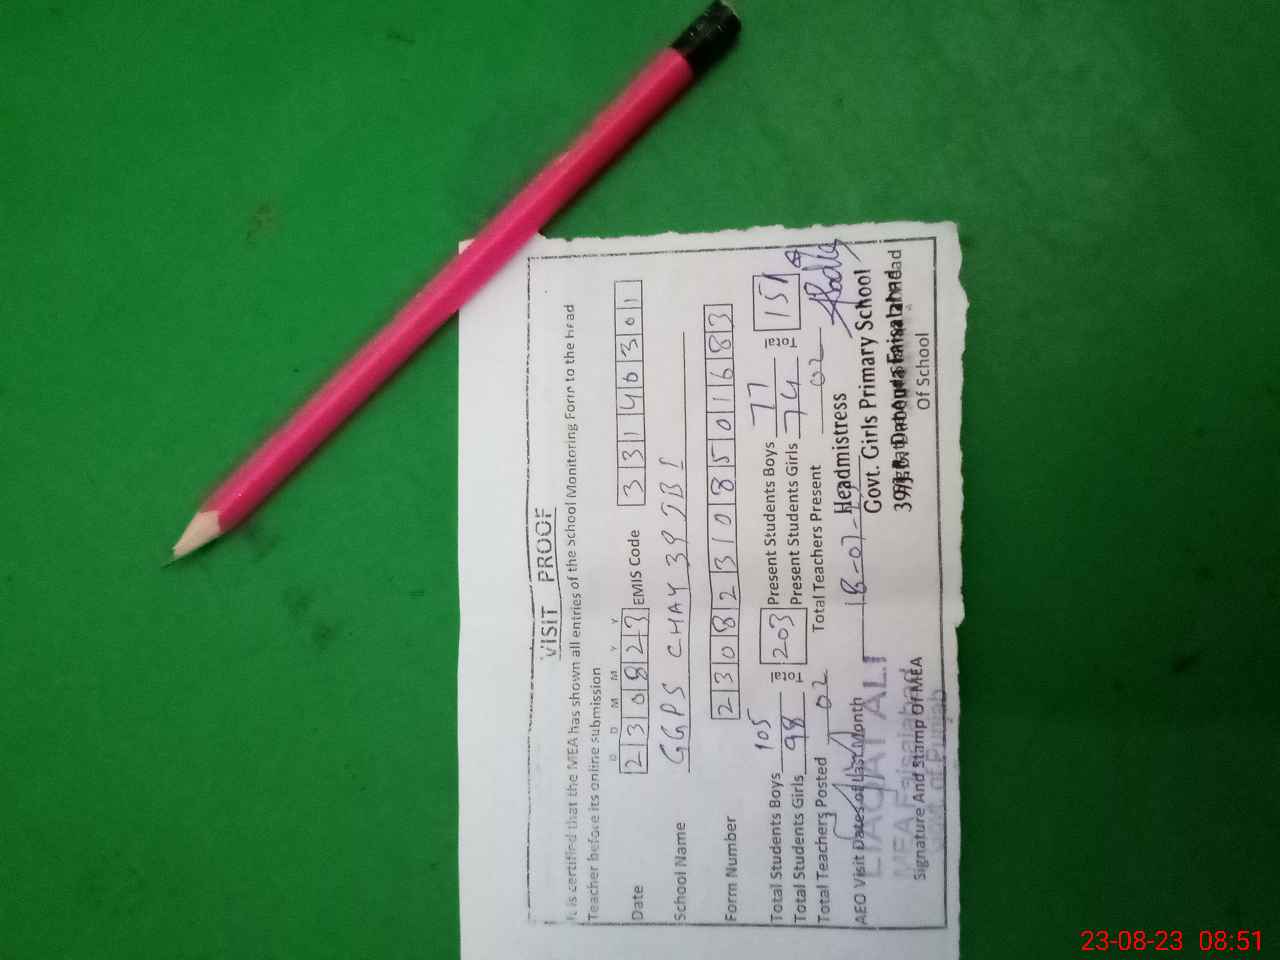 VISIT PROOF
It is certified that the MEA has shown all entries of the School Monitoring Form to the Head
Teacher before its online submission
D D M M Y Y
Date 230823 EMIS Code 33146301
School Name GGPS CHAY 39 JB I
Form Number 230823108501683
Total Students Boys 105 Total 203 Present Students Boys 77 Total 151
Total Students Girls 98 Present Students Girls 74
Total Teachers Posted 02 Total Teachers Present 02
AEO Visit Dates of Last Month 18-07- Headmistress
LIAQAT ALI Govt. Girls Primary School
MEA Faisalabad Faisalabad
Signature And Stamp Of MEA Of School
23-08-23 08:51